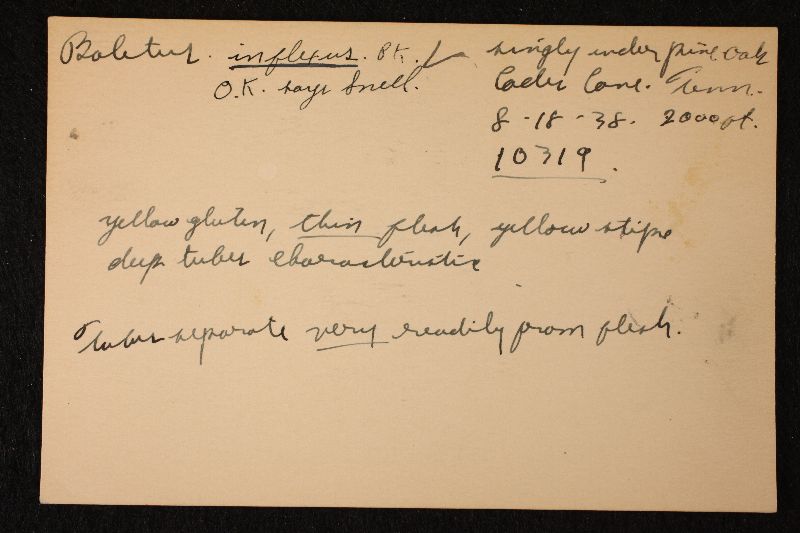 Boletus. inflexus. Pk. ✓
O.K. says Snell.
singly under pine oak
Cades Cove. Tenn.
8-18-38. 2000 ft.
10319.
yellow gluten, thin flesh, yellow stipe
deep tubes characteristic
Tubes separate very readily from flesh.